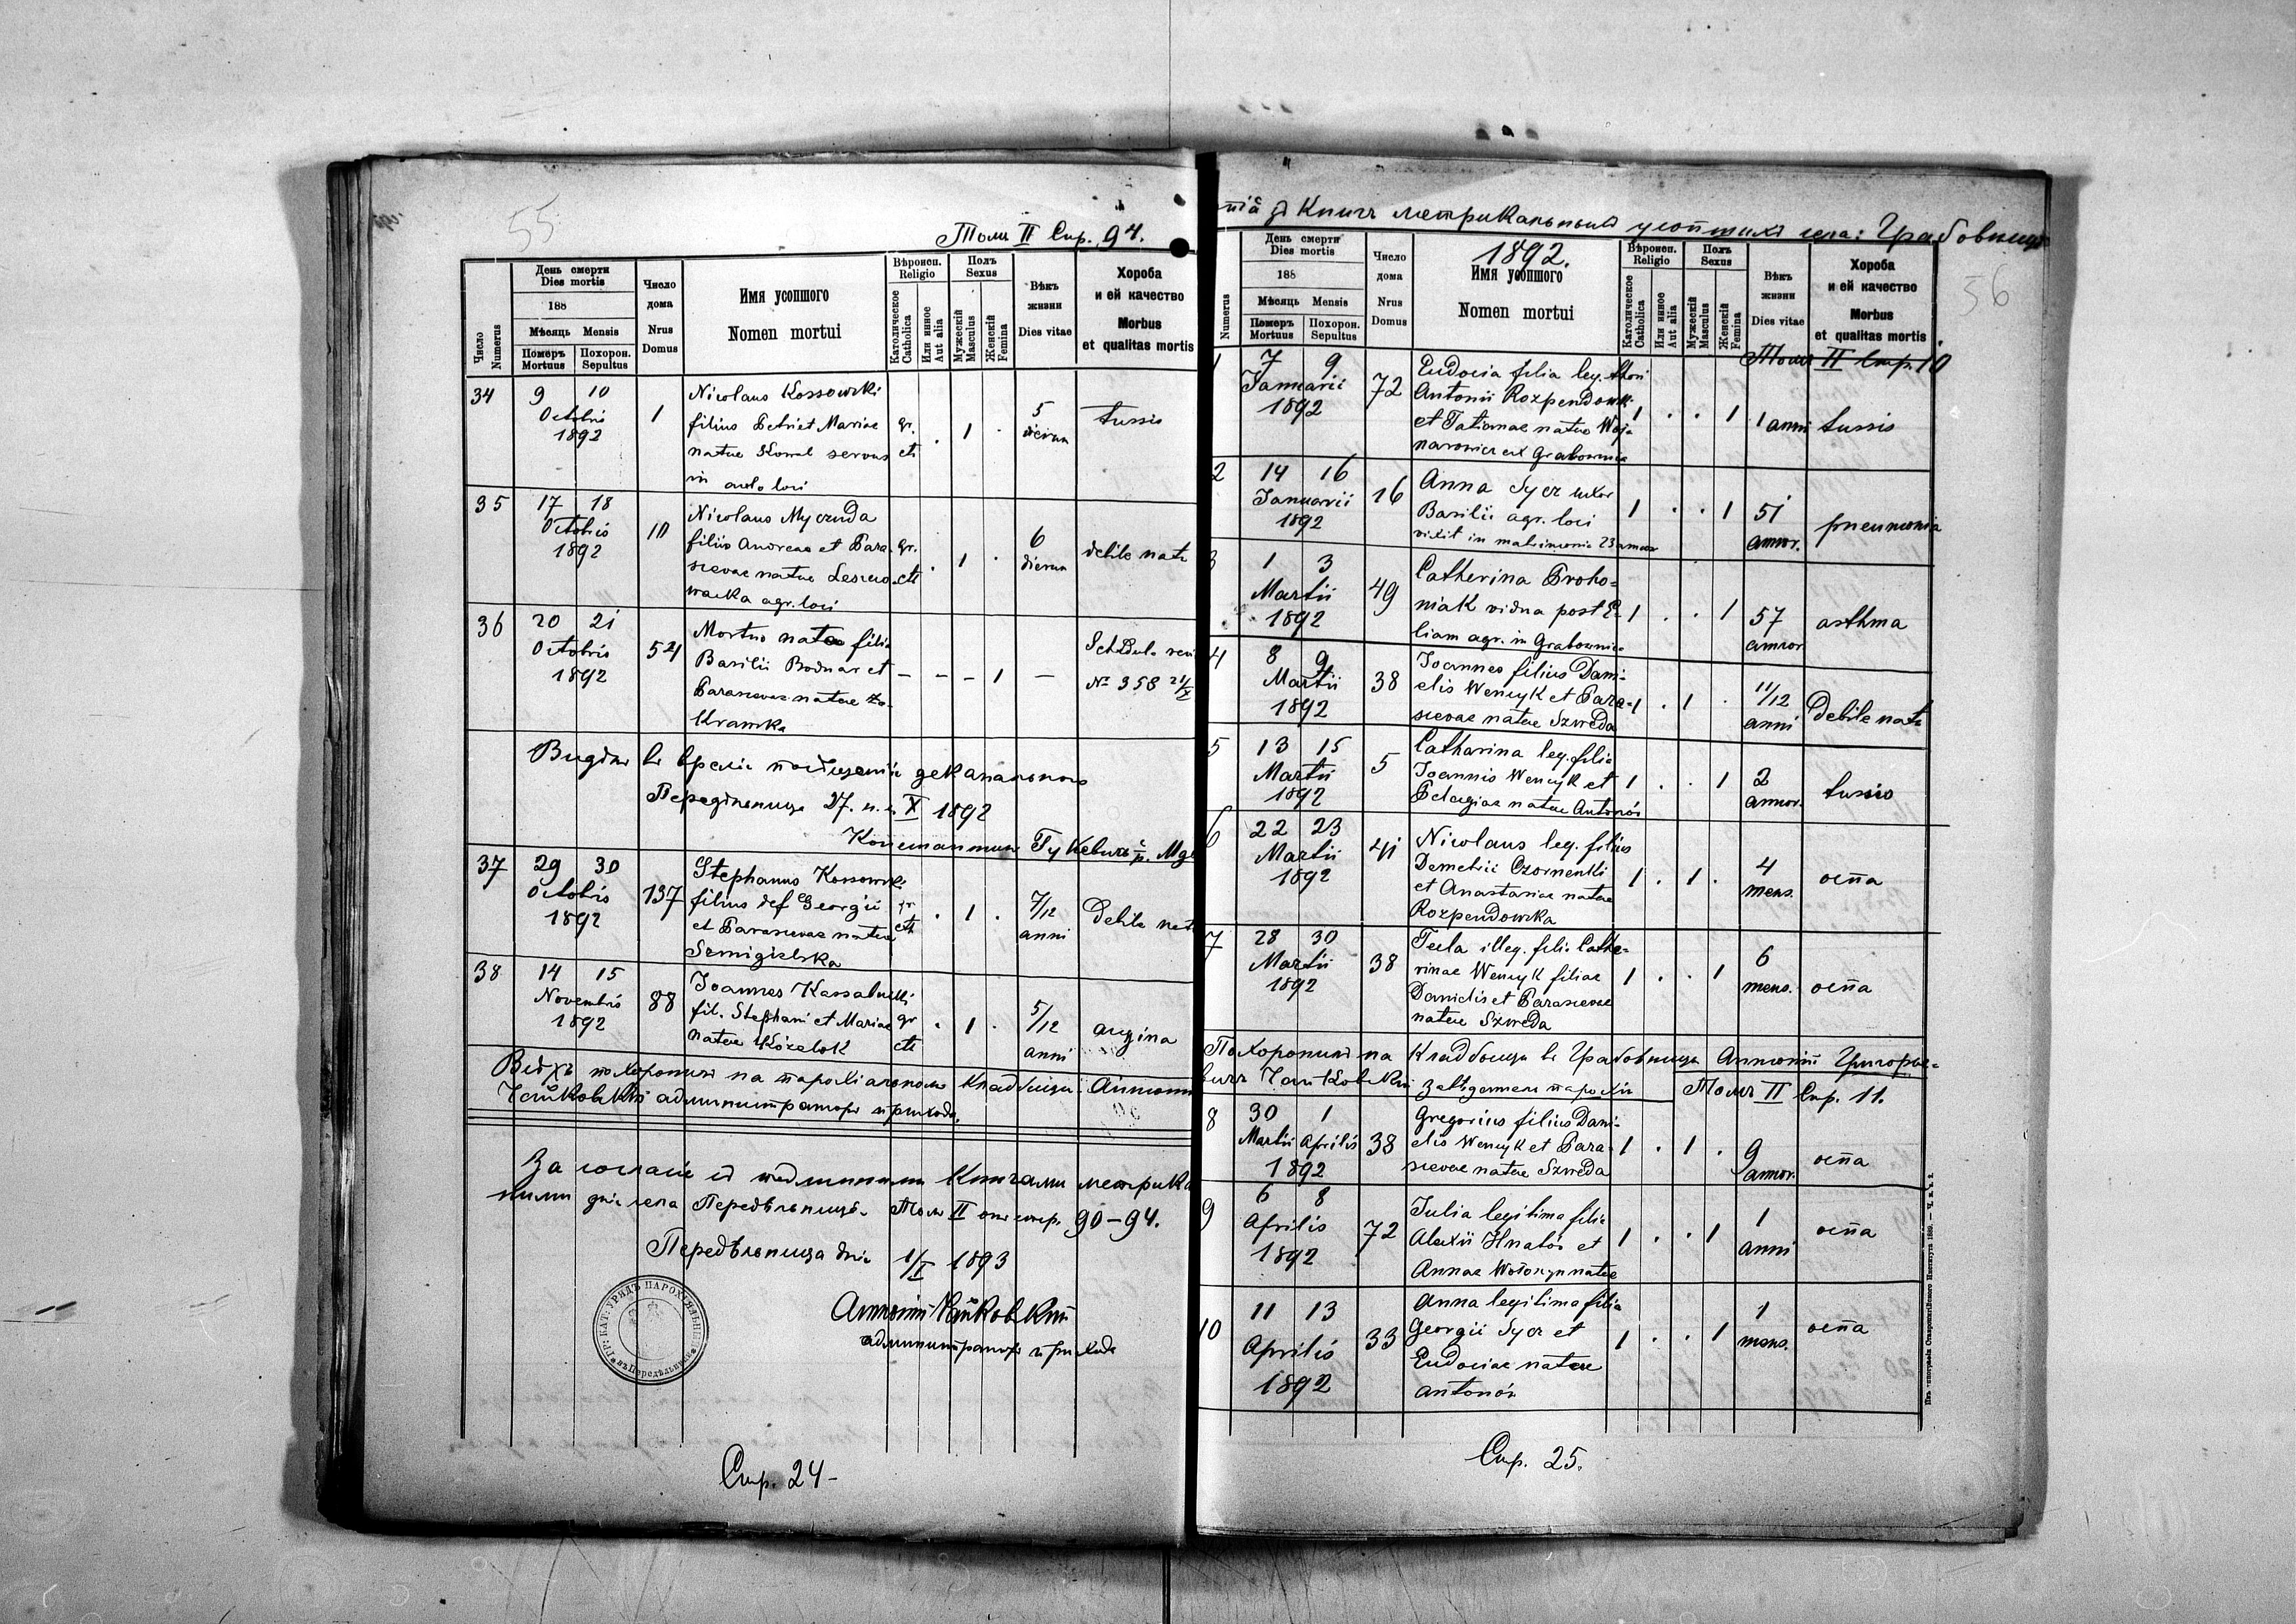 55
Томъ II Стр. 94.
Число
Numerus
День смерти
Dies mortis
188
Мѣсяць Mensis
Померъ Похорон.
Mortuus Sepultus
Число
дома
Nrus
Domus
Имя усопшого
Nomen mortui
Вѣроисп.
Religio
Католическое
Catholica
Или инное
Aut alia
Полъ
Sexus
Мужескій
Masculus
Женскій
Femina
Вѣкъ
жизни
Dies vitae
Хороба
и ей качество
Morbus
et qualitas mortis
34 9 10 Octobris 1892 1
Nicolaus Kossowski
filius Petri et Mariae
natae Kowal servus
in aulo loci
gr. . 1 . 5 dierum tussis
35 17 18 Octobris 1892 10
Nicolaus Myczuda
filius Andreae et Para-
scevae natae
agr. loci
gr. . 1 . 6 dierum debile nat
36 20 21 Octobris 1892 54
Mortuo nata filia
Basilii Bodnar et
Parascevae natae
Kramska
– – – 1 – № 358 21/X
Видѣлъ въ время посѣщенія деканального
Передѣльница 27. н. с. X 1892
Константинъ
37 29 30 Octobris 1892 137
Stephanus Kossowski
filius def Georgii
et Parascevae natae
Szmigielska
gr . 1 . 7/12 anni Debile nat
38 14 15 Novembris 1892 88
Joannes
fil. Stephani et Mariae
natae Kózelok
gr . 1 . 5/12 anni angina
Всѣхъ похоронилъ на парохіальномъ кладбищи Антоній
Чайковскій администраторъ прихода.
За согласіе съ подлинными книгами метрика
ними для села Передѣльница Томъ II отъ стр. 90–94.
Передѣльница дня 1/I 1893
Антоній Чайковскій
администраторъ прихода
Стр. 24-
Книгъ метрикальныхъ усопшихъ села: Грабовница
56
1892.
Numerus
День смерти
Dies mortis
188
Мѣсяць Mensis
Померъ Похорон.
Mortuus Sepultus
Число
дома
Nrus
Domus
Имя усопшого
Nomen mortui
Вѣроисп.
Religio
Католическое
Catholica
Или инное
Aut alia
Полъ
Sexus
Мужескій
Masculus
Женскій
Femina
Вѣкъ
жизни
Dies vitae
Хороба
и ей качество
Morbus
et qualitas mortis
Томъ II Стр. 10
1 7 9 Januarii 1892 72
Eudocia filia leg. thori
Antonii Rozpendowski
et Tatianae natae Woj-
narowicz ex Grabownica
1 . . 1 1 anni tussis
2 14 16 Januarii 1892 16
Anna Sycz uxor
Basilii agr. loci
vixit in matrimonio 23 annor
1 . . 1 51 annor. pneumonia
3 1 3 Martii 1892 49
Catherina Proho=
niak vidua post E
liam agr. in Grabownica
1 . . 1 57 annor asthma
4 8 9 Martii 1892 38
Joannes filius Dani-
elis Wencyk et Para-
scevae natae Szweda
1 . 1 . 11/12 anni Debile nat
5 13 15 Martii 1892 5
Catharina leg. filia
Joannis Wencyk et
Pelagiae natae Antonów
1 . . 1 2 annor. tussis
6 22 23 Martii 1892 41
Nicolaus leg. filius
Demetrii
et Anastasiae natae
Rozpendowska
1 . 1 . 4 mens. оспа
7 28 30 Martii 1892 38
Tecla illeg. filia Cathe-
rinae Wencyk filiae
Danielis et Parascevae
natae Szweda
1 . . 1 6 mens. оспа
Похоронилъ на кладбищи въ Грабовници Антоній Григорье-
вичъ Чайковскій завѣдатель парохіи Томъ II Стр. 11.
8 30 1 Martii Aprilis 1892 38
Gregorius filius Dani-
elis Wencyk et Para-
scevae natae Szweda
1 . 1 . 9 annor. оспа
9 6 8 Aprilis 1892 72
Julia legitima filia
Alexii Hnatów et
Annae Wołoszyn natae
1 . . 1 1 anni оспа
10 11 13 Aprilis 1892 33
Anna legitima filia
Georgii Sycz et
Eudociae natae
Antonów
1 . . 1 1 mens. оспа
Стр. 25.